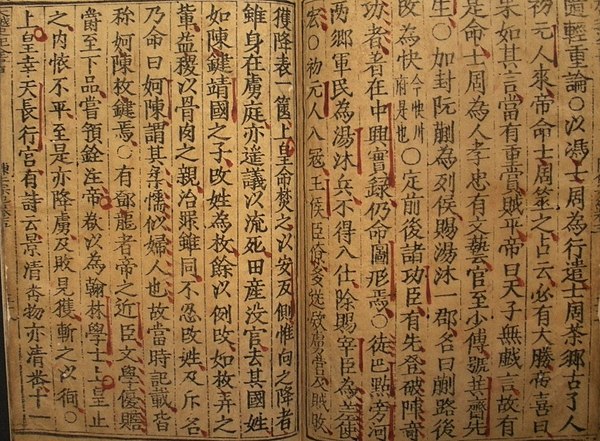 隨輕重論○以馮士周為行遣士周茶鄉古了人
初元人來帝命士周筮之占云必有大勝帝喜曰
果如其言當有重賞賊平帝曰天子無戲言故有
是命士周為人孝忠有文藝官至少傅號其齋先
生○加封阮蒯為列侯賜湯沐一郡名曰蒯路後
改為快今快州府是也○定前後諸功臣有先登破陣奇
功者著在中興實錄仍命圖形焉○徒巴點旁河
兩鄉軍民為湯沐兵不得入仕除賜宰臣為差使
宏○初元人入寇王侯臣僚多送欵虜營及賊敗
獲降表一篋上皇命焚之以安反側惟向之降者
雖身在虜庭亦遥議以流死田産没官去其國姓
如陳鍵靖國之子改姓為枚餘以例改如枚弄之
黨益稷以骨肉之親治罪雖同不忍改姓及斥名
乃命曰妸陳謂其柔懦似婦人也故當時記載皆
稱妸陳枚鍵焉○有鄧龍者帝之近臣文學優贍
爵至下品嘗領銓注帝欲以為翰林學士上皇止
之内怀不平至是亦降虜及敗見獲斬之以徇○
上皇幸天長行宫有詩云景清畨物亦清畨十一